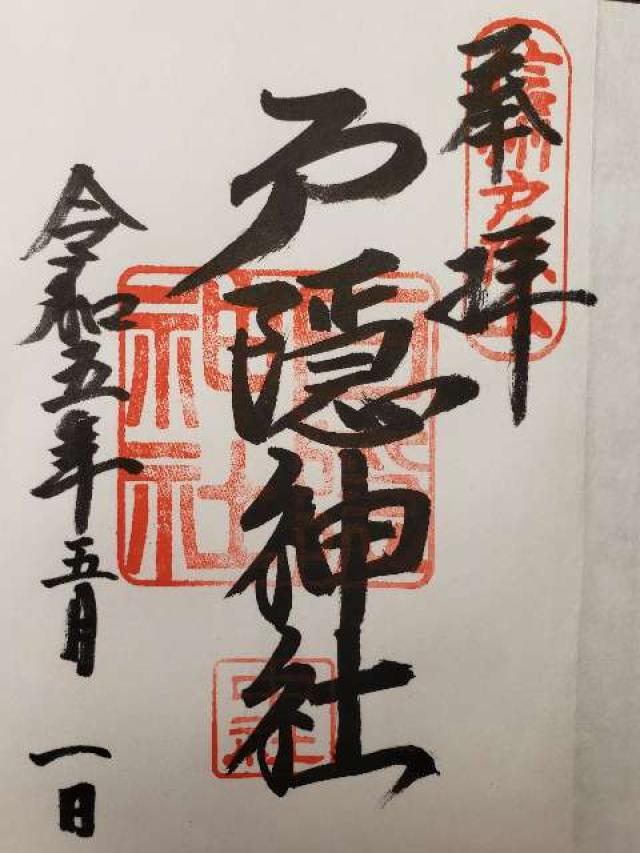 奉拝
信州戸隠山
戸隠神社
戸隠神社
中社
令和五年五月 一日